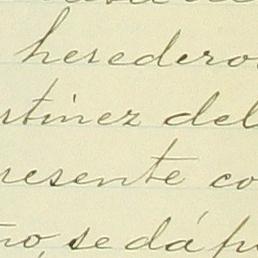 heredero
rtinez del
resente co
no, se dá p